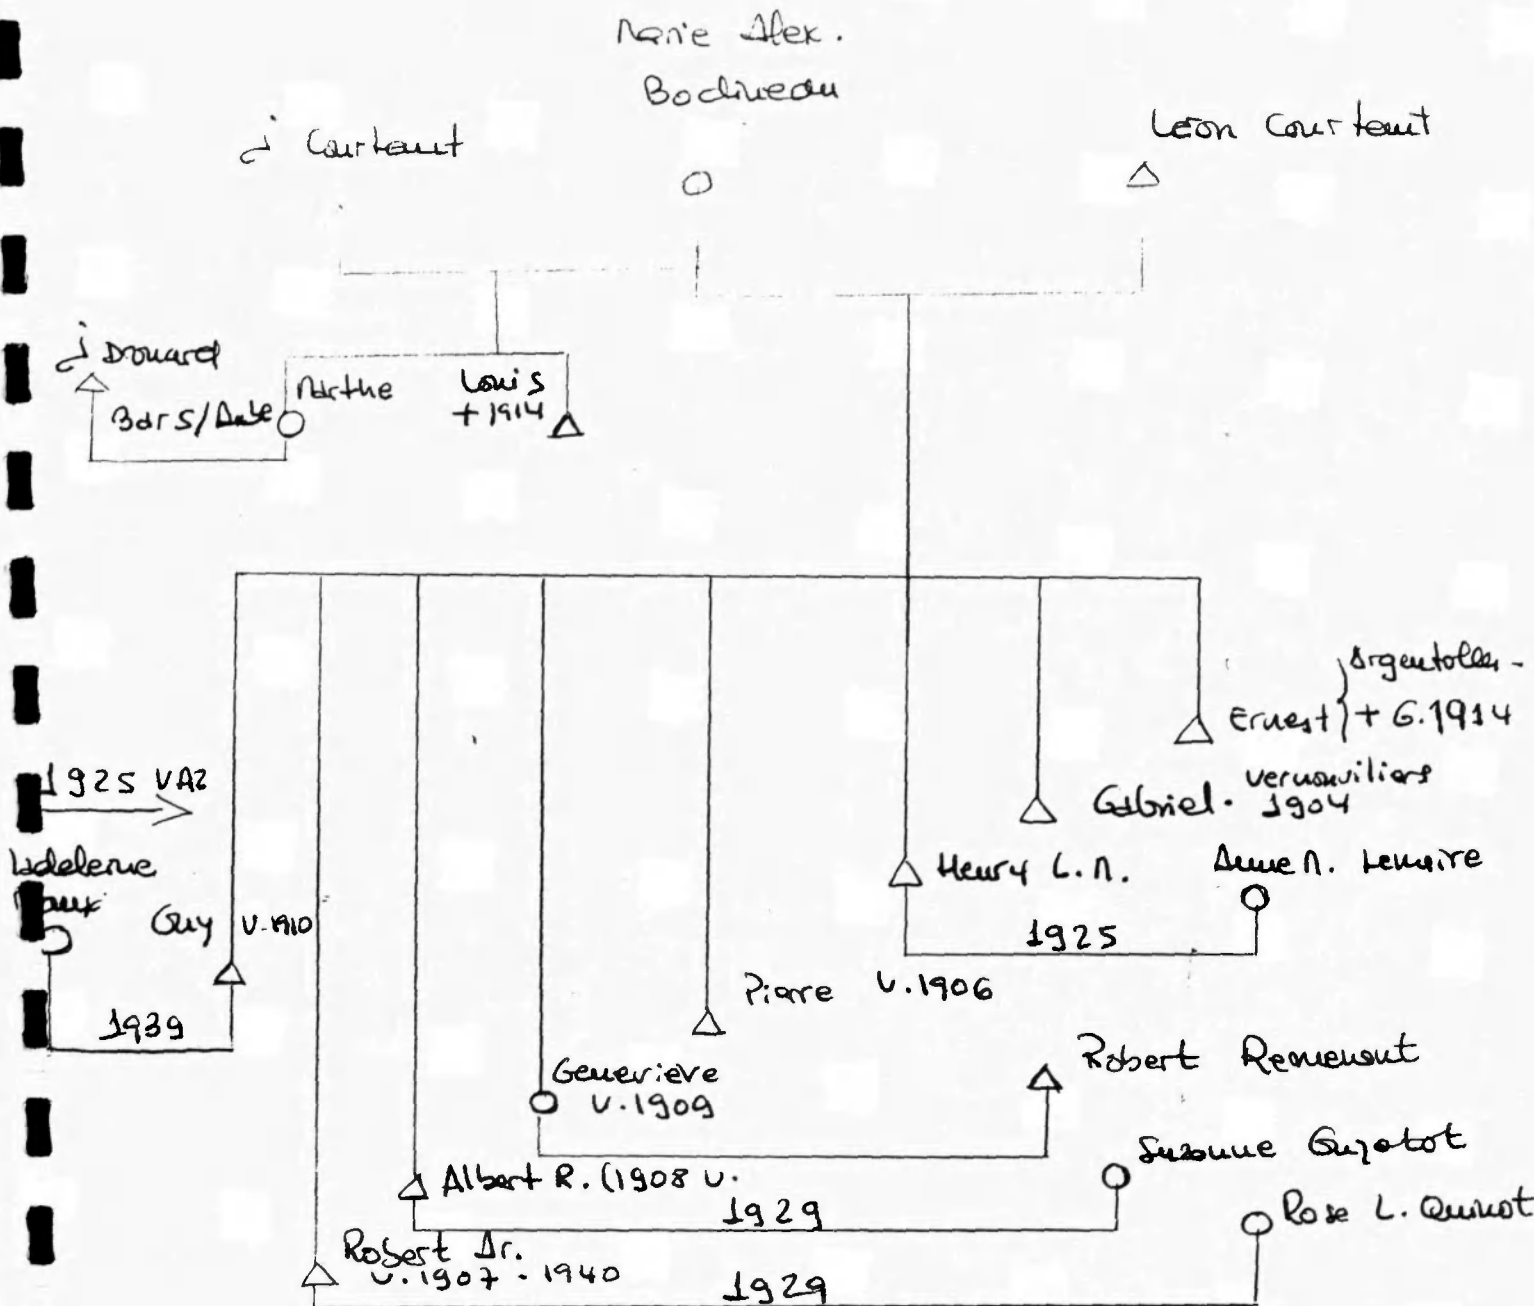 Marie Alex.
Bodineau
J Courtaut
Léon Courtaut
J Drouard
Bar S/Aube
Marthe
Louis
+ 1914
Argentolles -
Ernest } + G.1914
Gabriel. Vernonviliers
1904
1925 VAZ
Madeleine
Guy V.1910
1939
Henry L.M.
Anne M. Lemaire
1925
Pierre V.1906
Genevieve
V.1909
Robert Remenent
Albert R. (1908 V.
Suzanne Guyotot
1929
Robert Ar.
V.1907 - 1940
Rose L. Quinot
1929